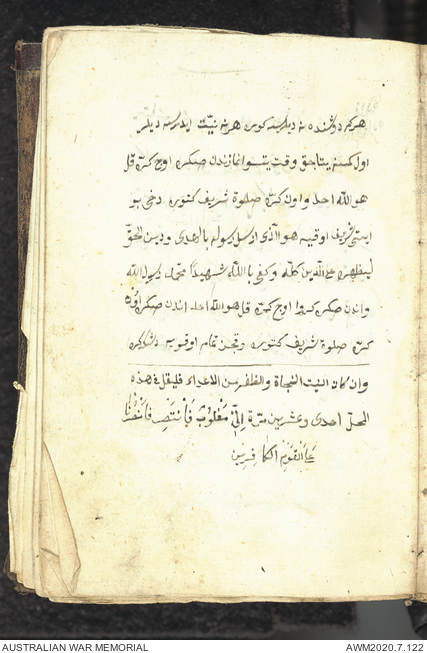 هر كيم دوشنده نه ديلرسه كورر هر نه نيت ايدرسه ديلر
اول كسنه يتاجق وقت يتسو نمازندن صكره اوج كره قل
هو الله احد واون كره صلوة شريف كتوره دخى بو
ايتى شريف اوقيه هو الذى ارسل رسوله بالهدى ودين الحق
ليظهره على الدين كله وكفى بالله شهيدا محمد رسول الله
واندن صكره كيرو اوج كره قل هو الله احد اندن صكره اون
كره صلوة شريف كتوره وقچن تمام اوقويه دشكره
وان كان النيت النجاة والظفر من الاعداء فليقل فى هذه
المحل احدى وعشرين مرة اِنّى مَغْلُوبٌ فَانْتَصِر فَانْصُرْنَا
عَلَى القَوْمِ الكَافِرِينَ
AUSTRALIAN WAR MEMORIAL
AWM2020.7.122